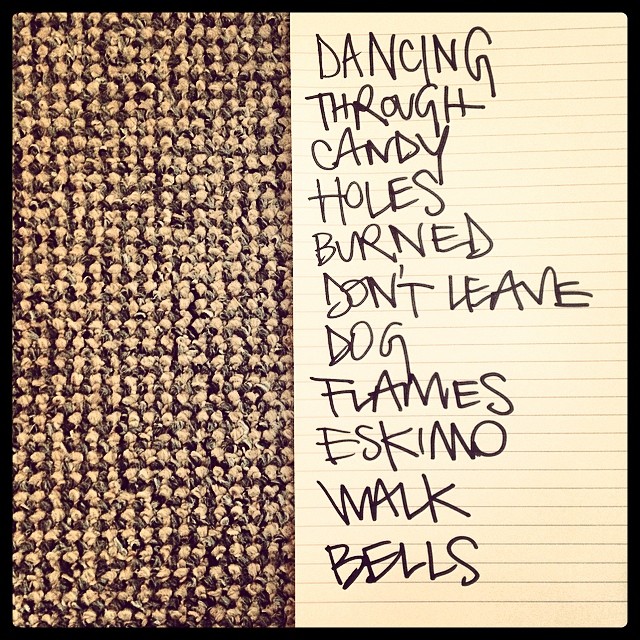 DANCING
THROUGH
CANDY
HOLES
BURNED
DON'T LEAVE
DOG
FLAMES
ESKIMO
WALK
BELLS